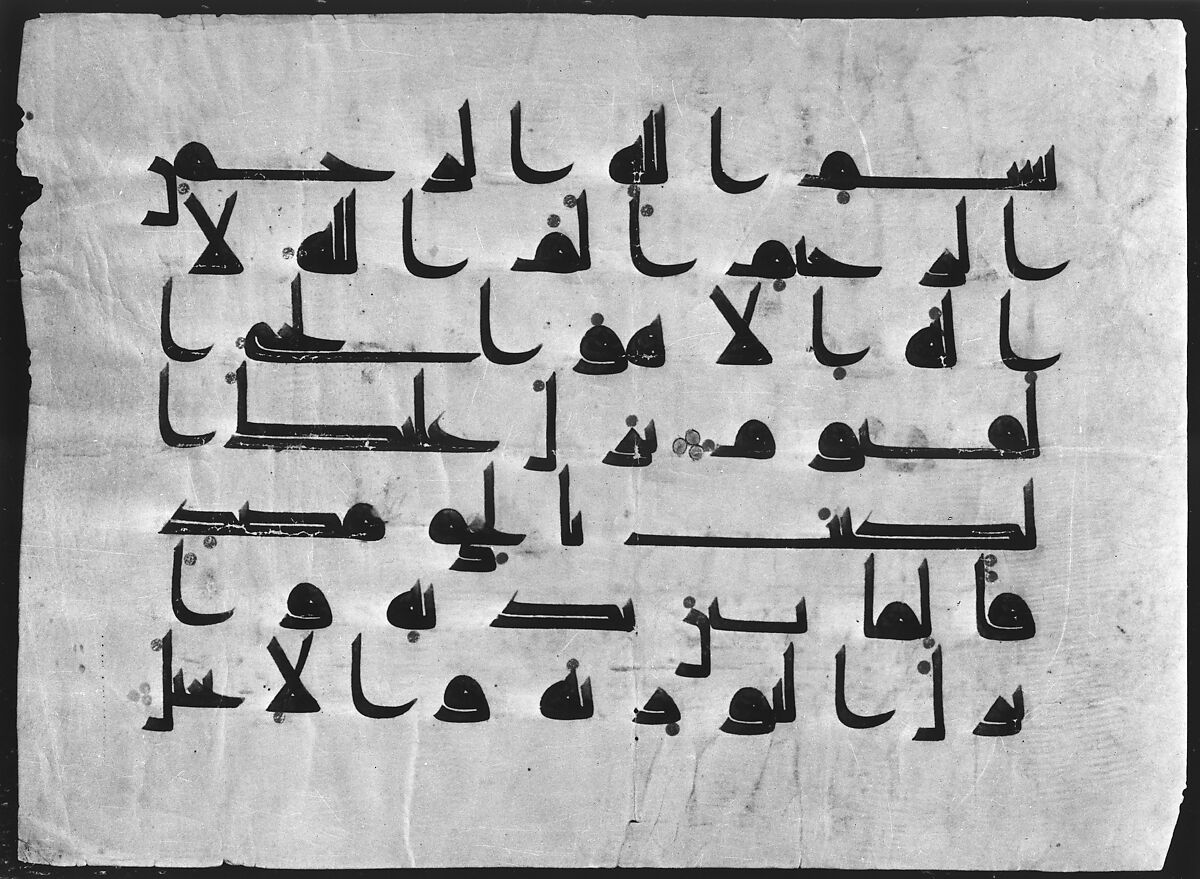 بسم الله الرحمن
الرحيم الم الله لا
اله الا هو الحي ا
لقيوم نزل عليك ا
لكتب بالحق مصد
قا لما بين يديه وا
نزل التورية والانجيل